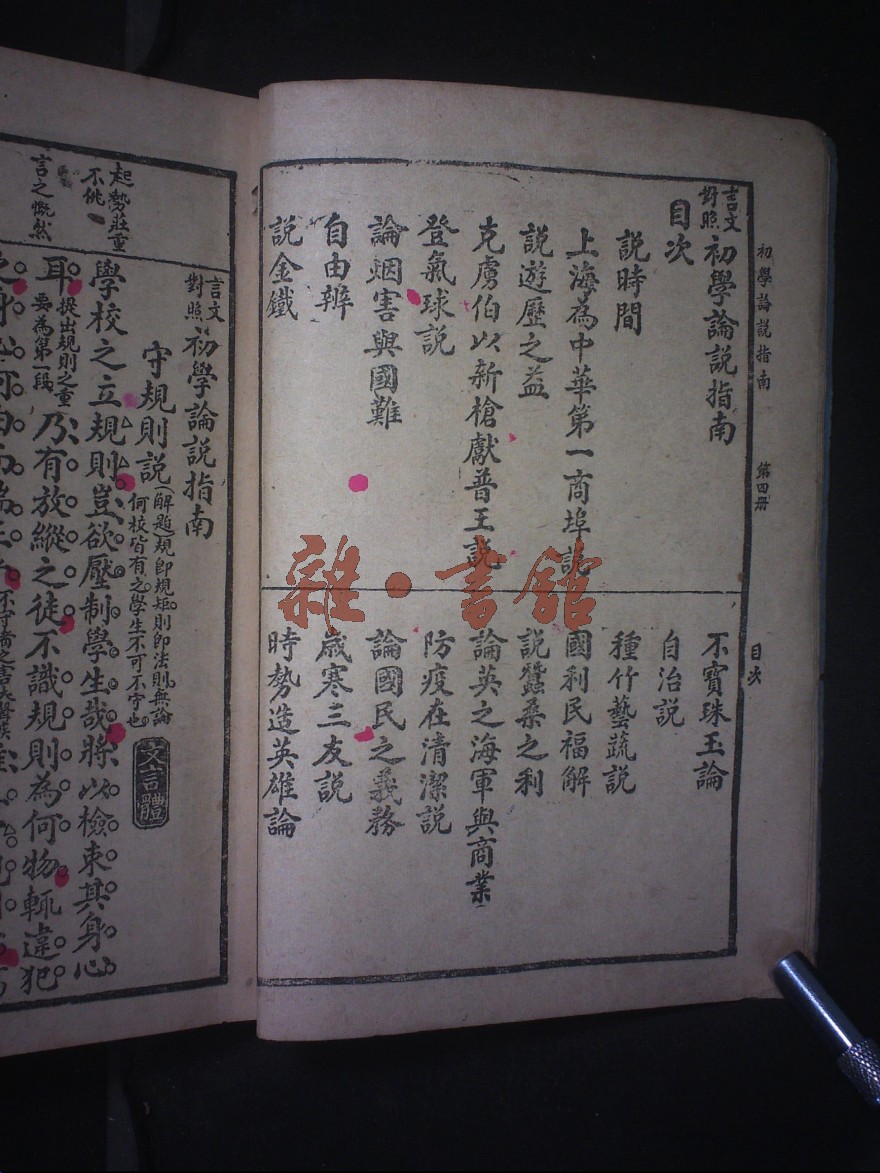 初學論說指南
第四冊
目次
言文對照初學論說指南
目次
說時間
上海為中華第一商埠說
說遊歷之益
克虜伯以新槍獻普王說
登氣球說
論烟害與國難
自由辨
說金鐵
不寶珠玉論
自治說
種竹藝蔬說
國利民福解
說蠶桑之利
論英之海軍與商業
防疫在清潔說
論國民之義務
歲寒三友說
時勢造英雄論
雜·書館
起勢莊重
不佻
言之慨然
言文對照初學論說指南
守規則說
(解題)規即規矩則即法則無論
何校皆有之學生不可不守也
文言體
學校之立規則豈欲壓制學生哉將以檢束其身心
耳
提出規則之重
要為第一段
乃有放縱之徒不識規則為何物輒違犯